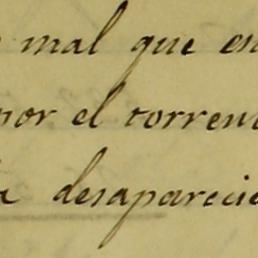 mal que en
por el torren
desapareci